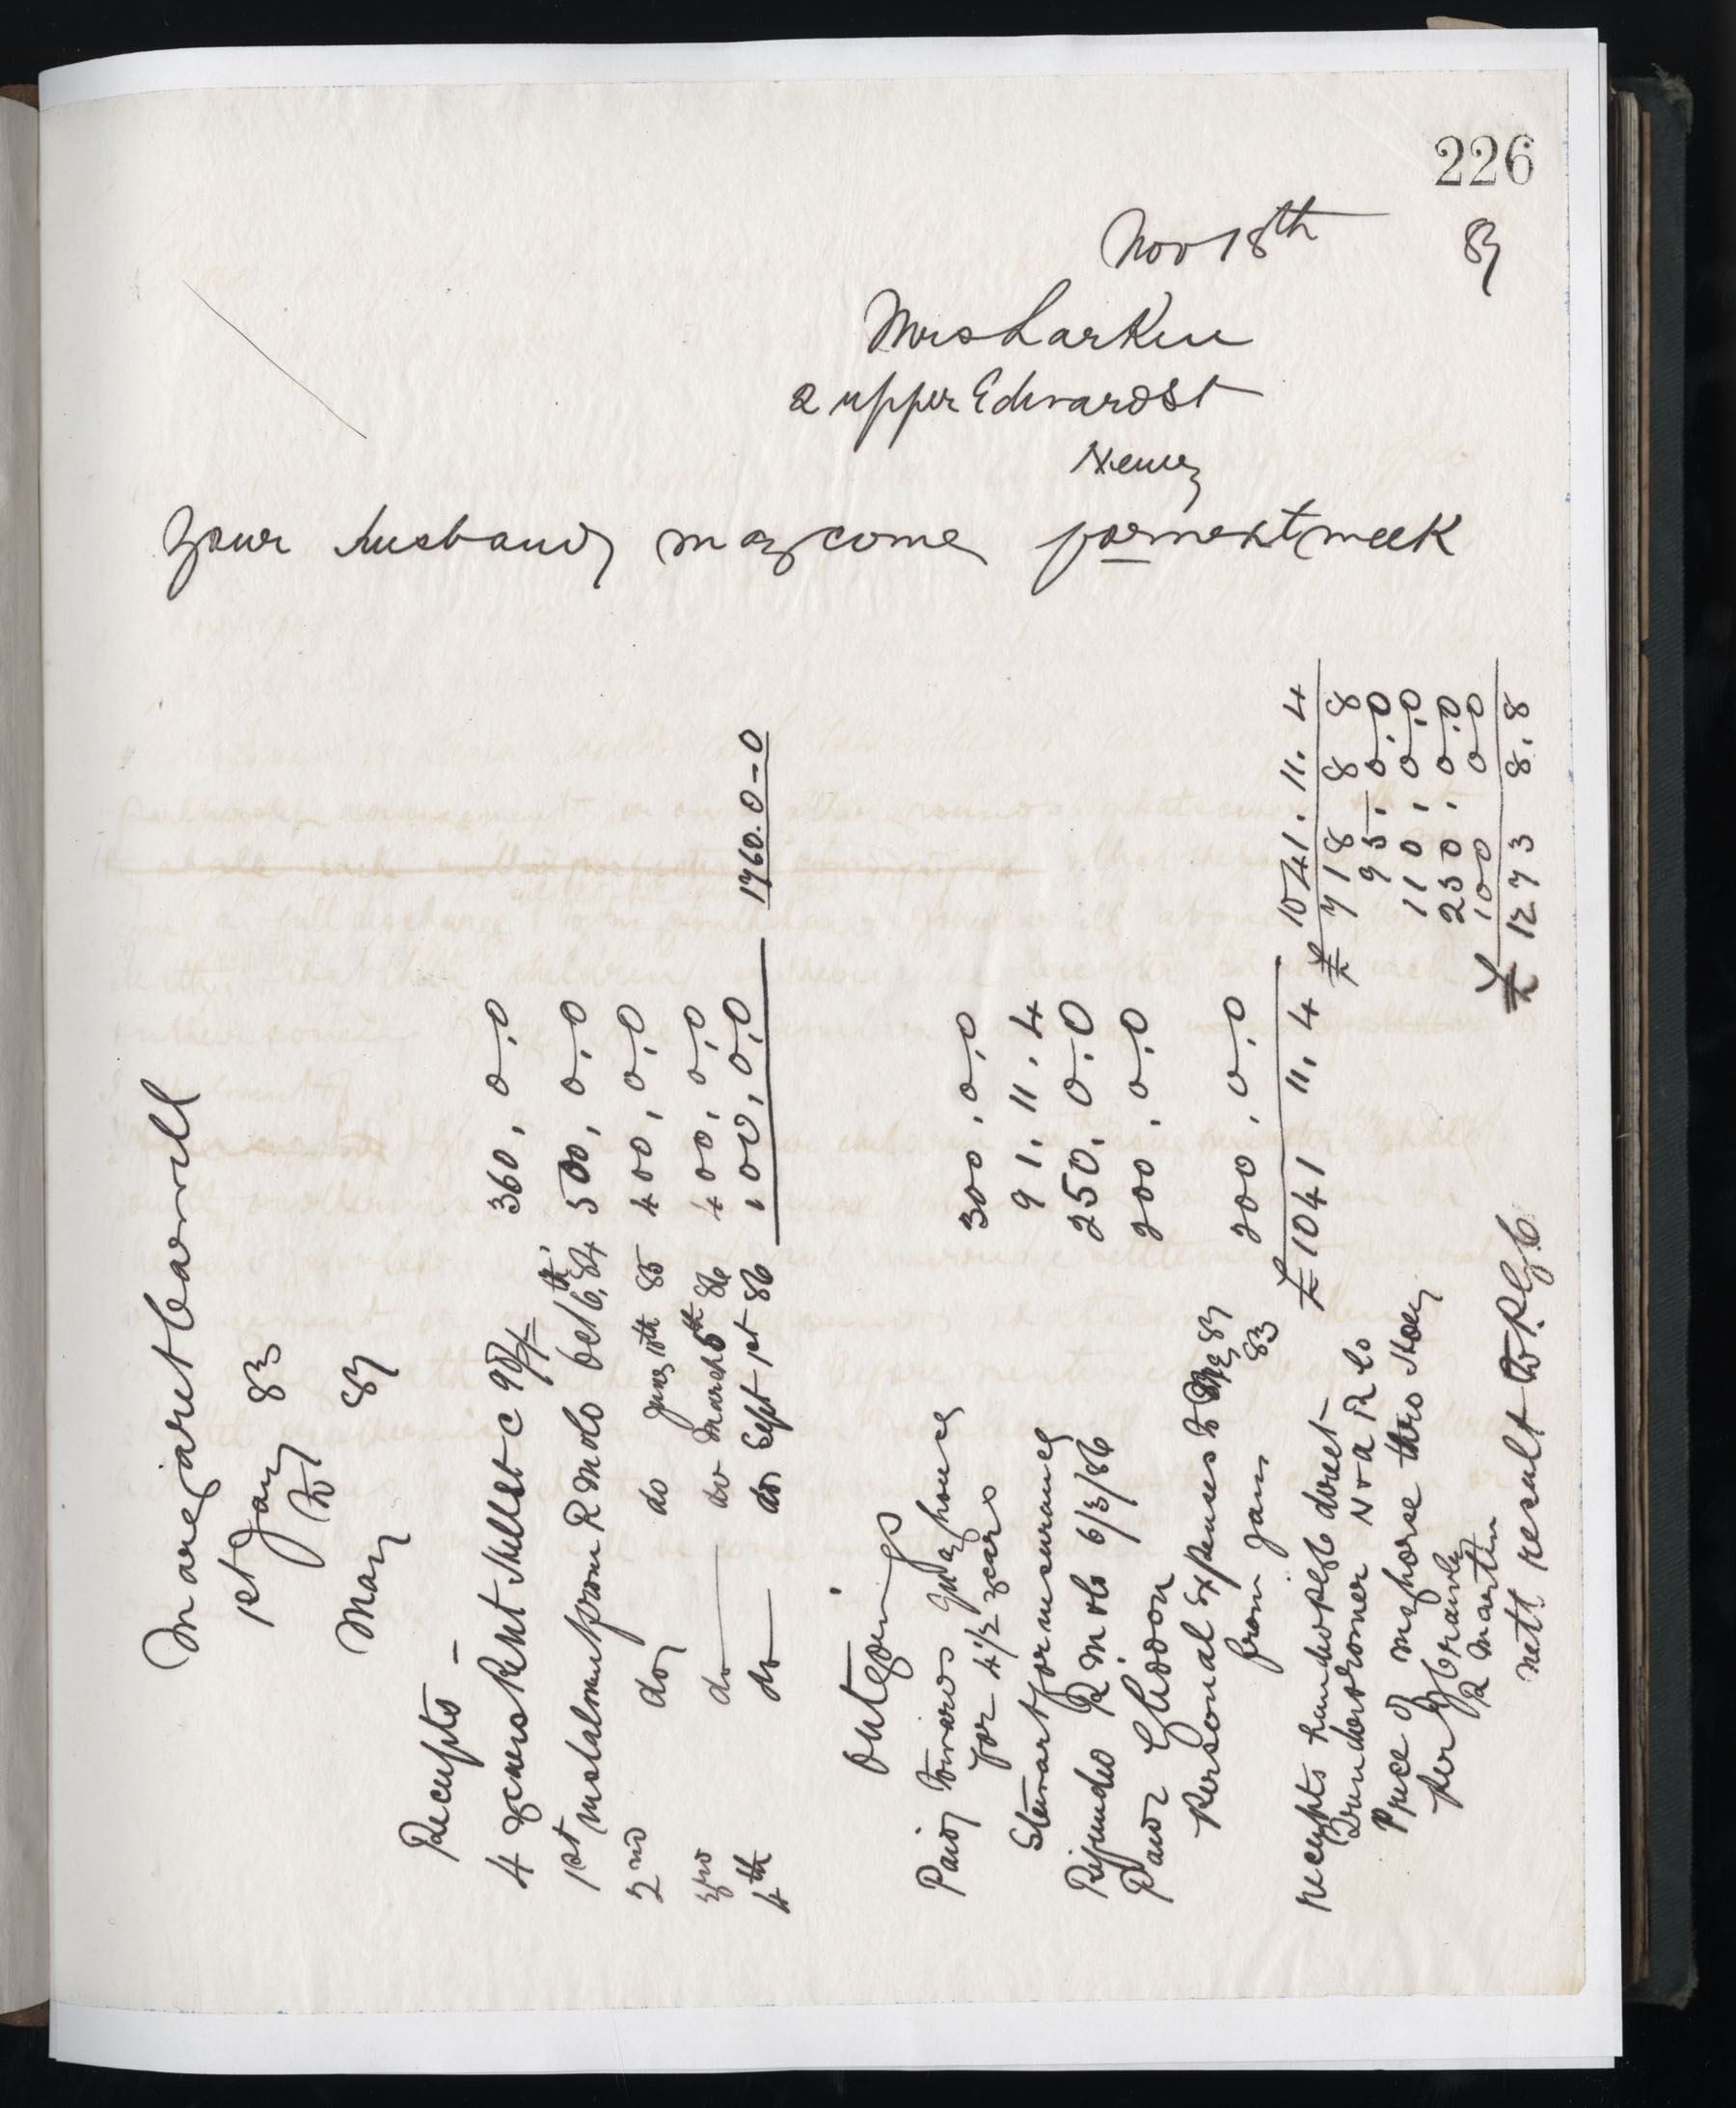 226
Nov 18th 87
Mrs Larkin
2 upper Edward St
Newry
Your husband may come for next week
Margaret Carvill
1st Jany 83
to
May 87
Receipts -
4 years Rent Millet C 90£/- 360, 0.0
1st instalment from R M & Co Oct 6th, 84 500, 0.0
2nd do do June 10th 85 400, 0.0
3rd do do March 5th 86 400, 0.0
4th do do Sept 1st 86 100, 0.0
1760.0-0
Outgoings
Paid towards house
for 4 1/2 years 300, 0.0
Stewart for insurance 91. 11. 4
Refunded R M & Co 6/3/86 250. 0.0
Paid Gliddon 200. 0.0
Personal Expenses to 87
from Jany 83 200, 0.0
£1041 11. 4
1041. 11. 4
£ 718 8 8
receipts handed P.L.G.C. direct
95. 0.0
N & A R Co 110, 0.0
Price of my horse thro Hoey 250. 0.0
per
R Martin 100 0 0
nett result to P.L.G.C. £ 1273 8.8